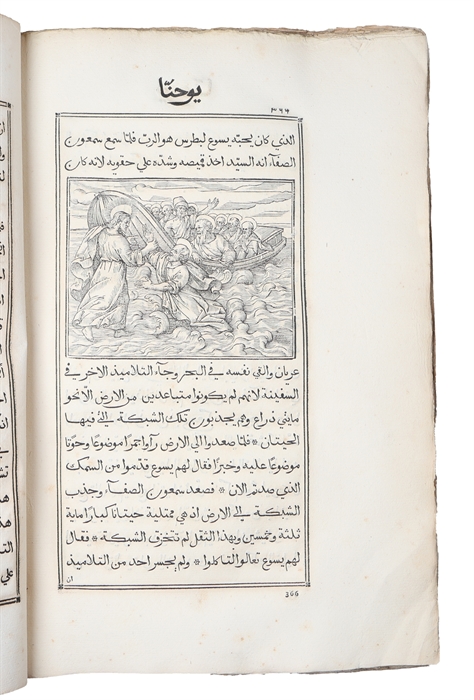 يوحنّا
٣٦٤
الذي كان يحبّه يسوع لبطرس هو الرب فلمّا سمع سمعون
الصفآء انه السيّد اخذ قميصه وشدّه علي حقويه لانه كان
عريان والقي نفسه في البحر وجآء التلاميذ الاخر في
السفينة لانهم لم يكونوا متباعدين من الارض الّا نحو
مايتي ذراع وهم يجذبون تلك الشبكة الّتي فيها
الحيتان * فلمّا صعدوا الي الارض رآوا جمرًا موضوعًا وحوتًا
موضوعًا عليه وخبزًا فقال لهم يسوع قدّموا من السمك
الذي صدتم الان * فصعد سمعون الصفآء وجذب
الشبكة الي الارض اذ هي ممتلية حيتانًا كبارًا ماية
ثلثة وخمسين وبهذا الثقل لم تتخرّق الشبكة * فقال
لهم يسوع تعالوا لتاكلوا * ولم يجسر احد من التلاميذ
ان
366